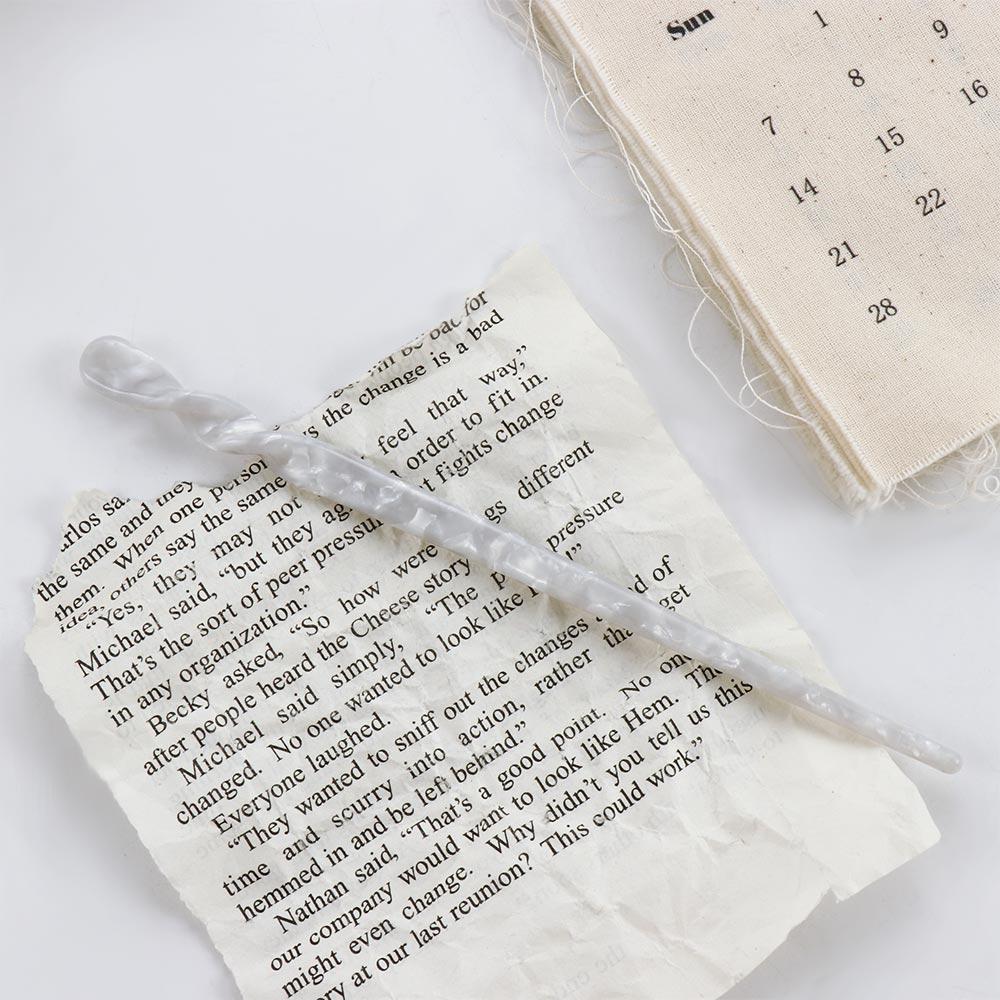 Sun 1 9
8 16
7 15
14 22
21
28
will be bad for
the change is a bad
feel that way,”
order to fit in.
fights change
different
pressure
the same and they
them. When one person
idea, others say the same
“Yes, they may not
Michael said, “but they
That’s the sort of peer
in any organization.”
Becky asked, “So how were
after people heard the Cheese story
Michael said simply, “The
changed. No one wanted to look like
Everyone laughed. of
“They wanted to sniff out the changes get
time and scurry into action, rather
hemmed in and be left behind.”
Nathan said, “That’s a good point. No
our company would want to look like Hem.
might even change. Why didn’t you tell us this
at our last reunion? This could work.”